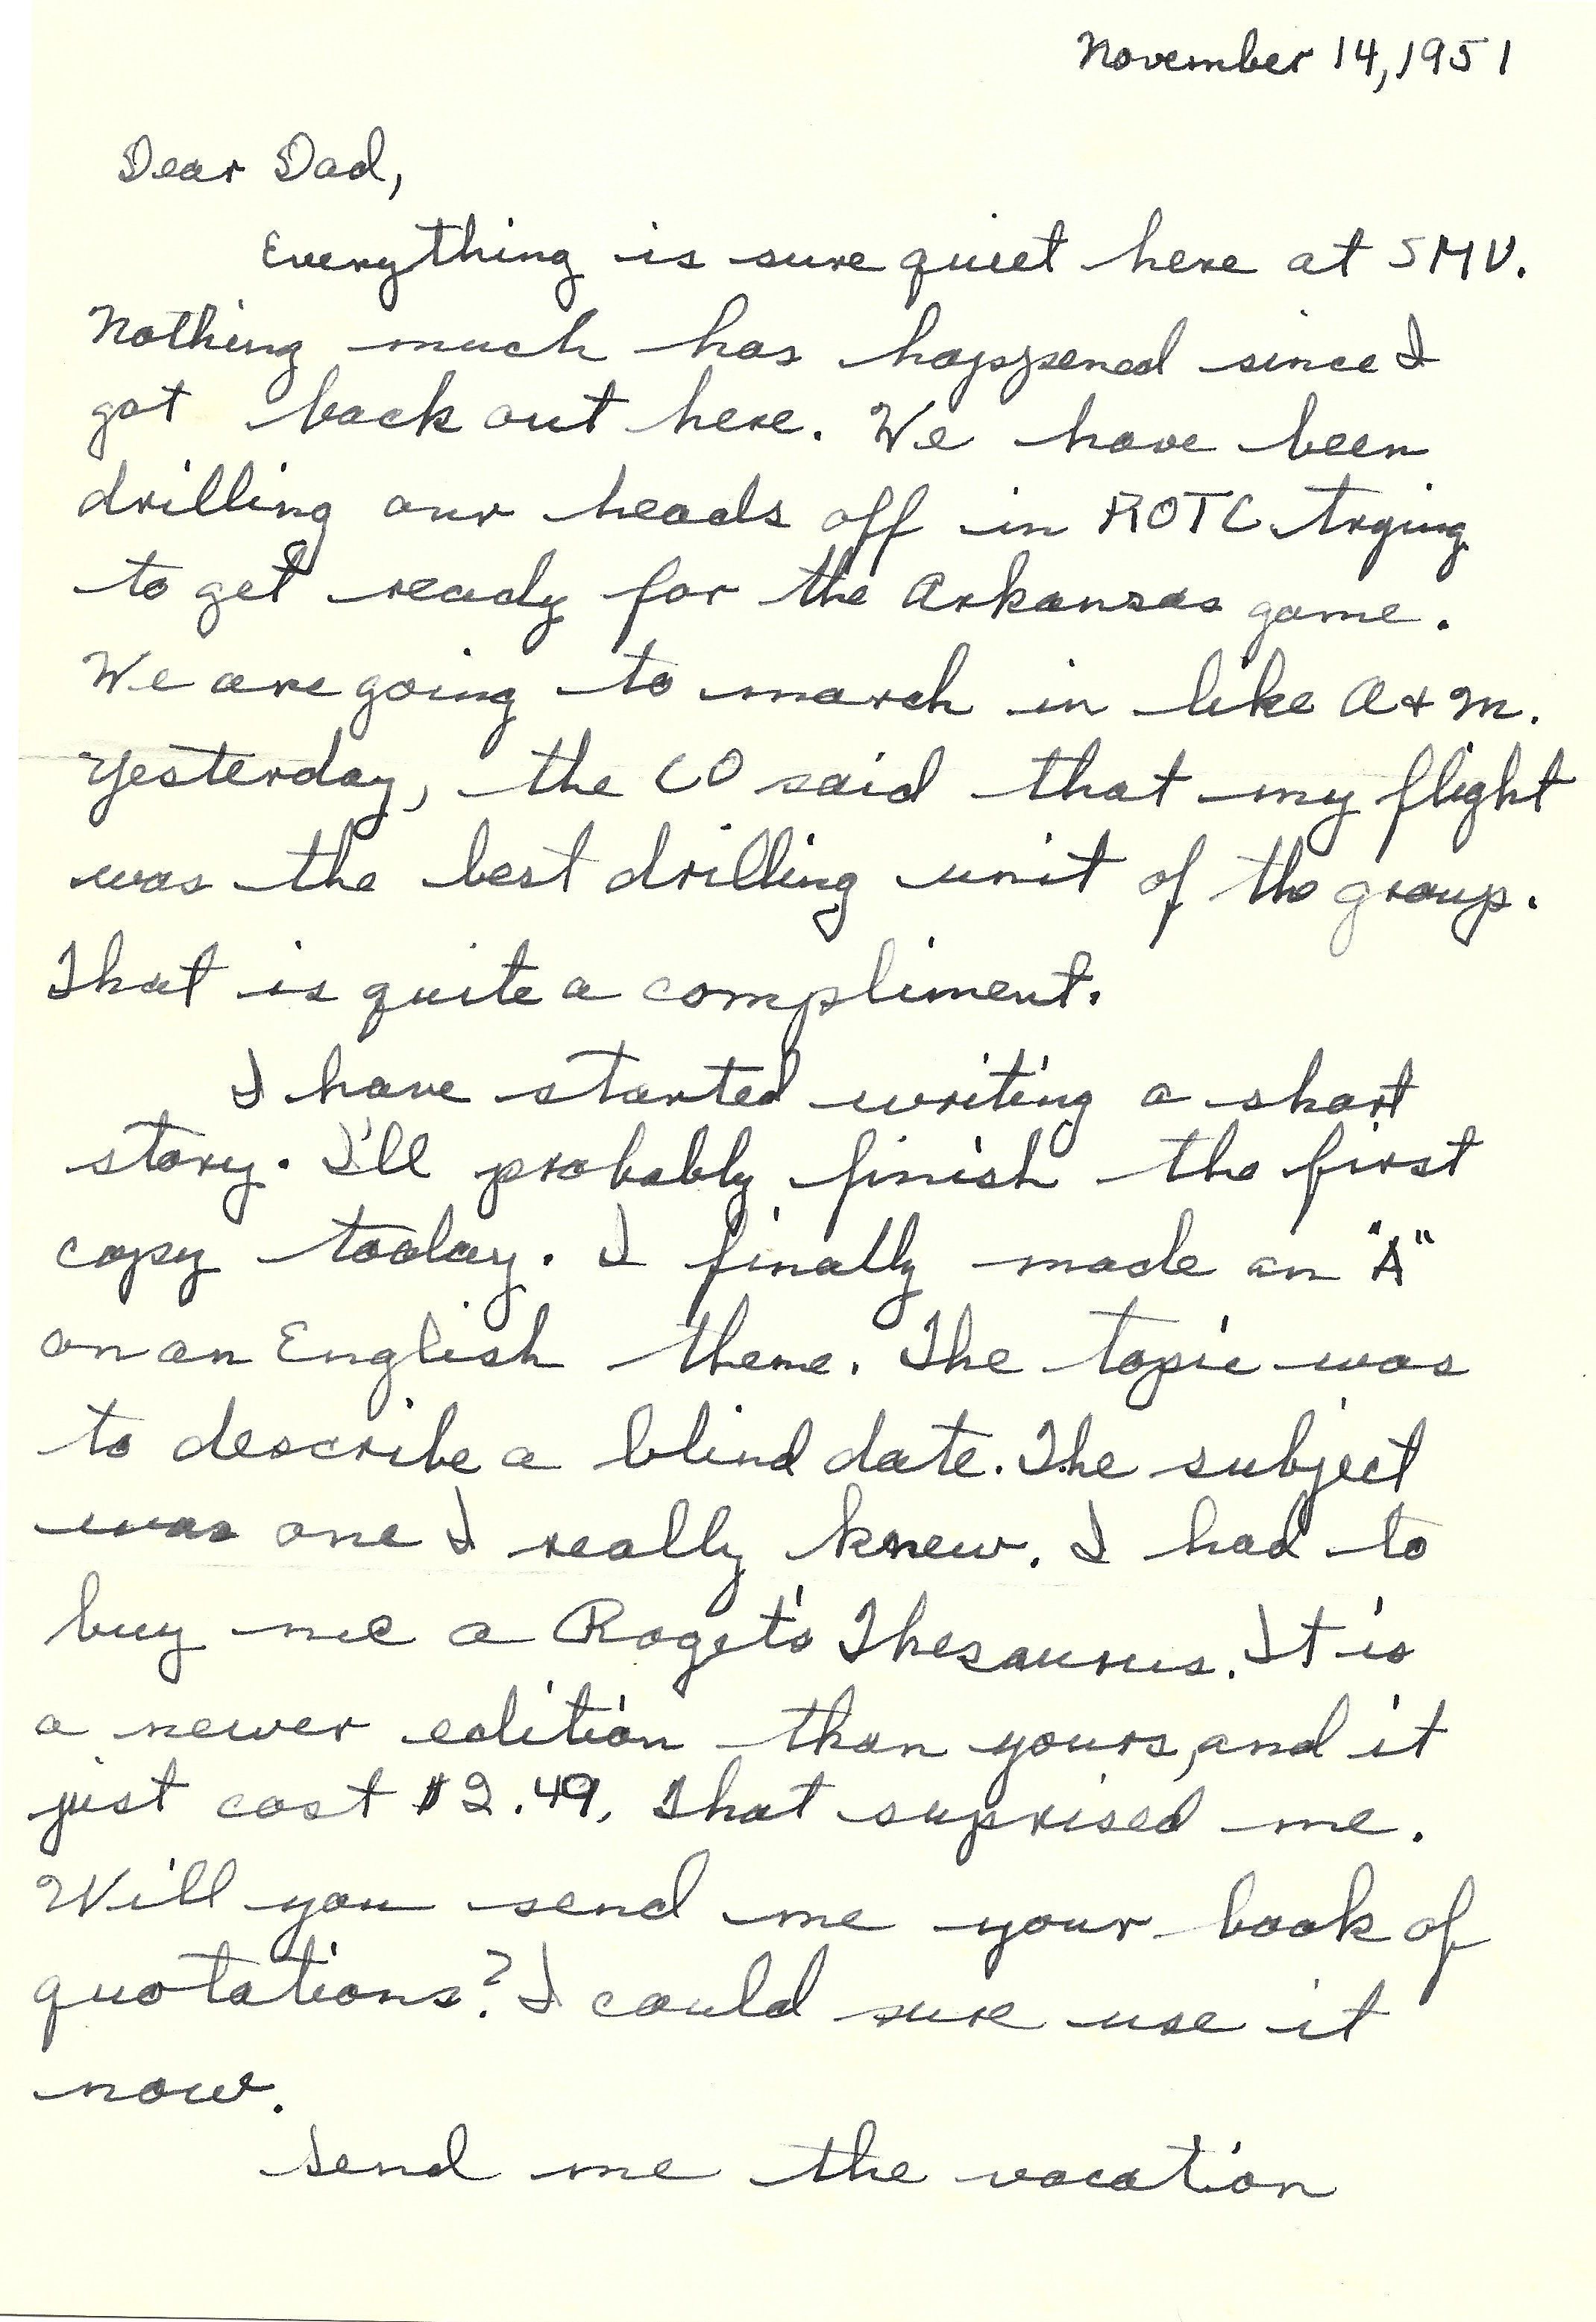 November 14, 1951
Dear Dad,
Everything is sure quiet here at SMU.
Nothing much has happened since I
got back out here. We have been
drilling our heads off in ROTC trying
to get ready for the Arkansas game.
We are going to march in like A+M.
Yesterday, the CO said that my flight
was the best drilling unit of the group.
That is quite a compliment.
I have started writing a short
story. I'll probably finish the first
copy today. I finally made an "A"
on an English theme. The topic was
to describe a blind date. The subject
was one I really knew. I had to
buy me a Roget's Thesaurus. It is
a newer edition than yours, and it
just cost $2.49. That suprised me.
Will you send me your book of
quotations? I could sure use it
now.
Send me the vacation